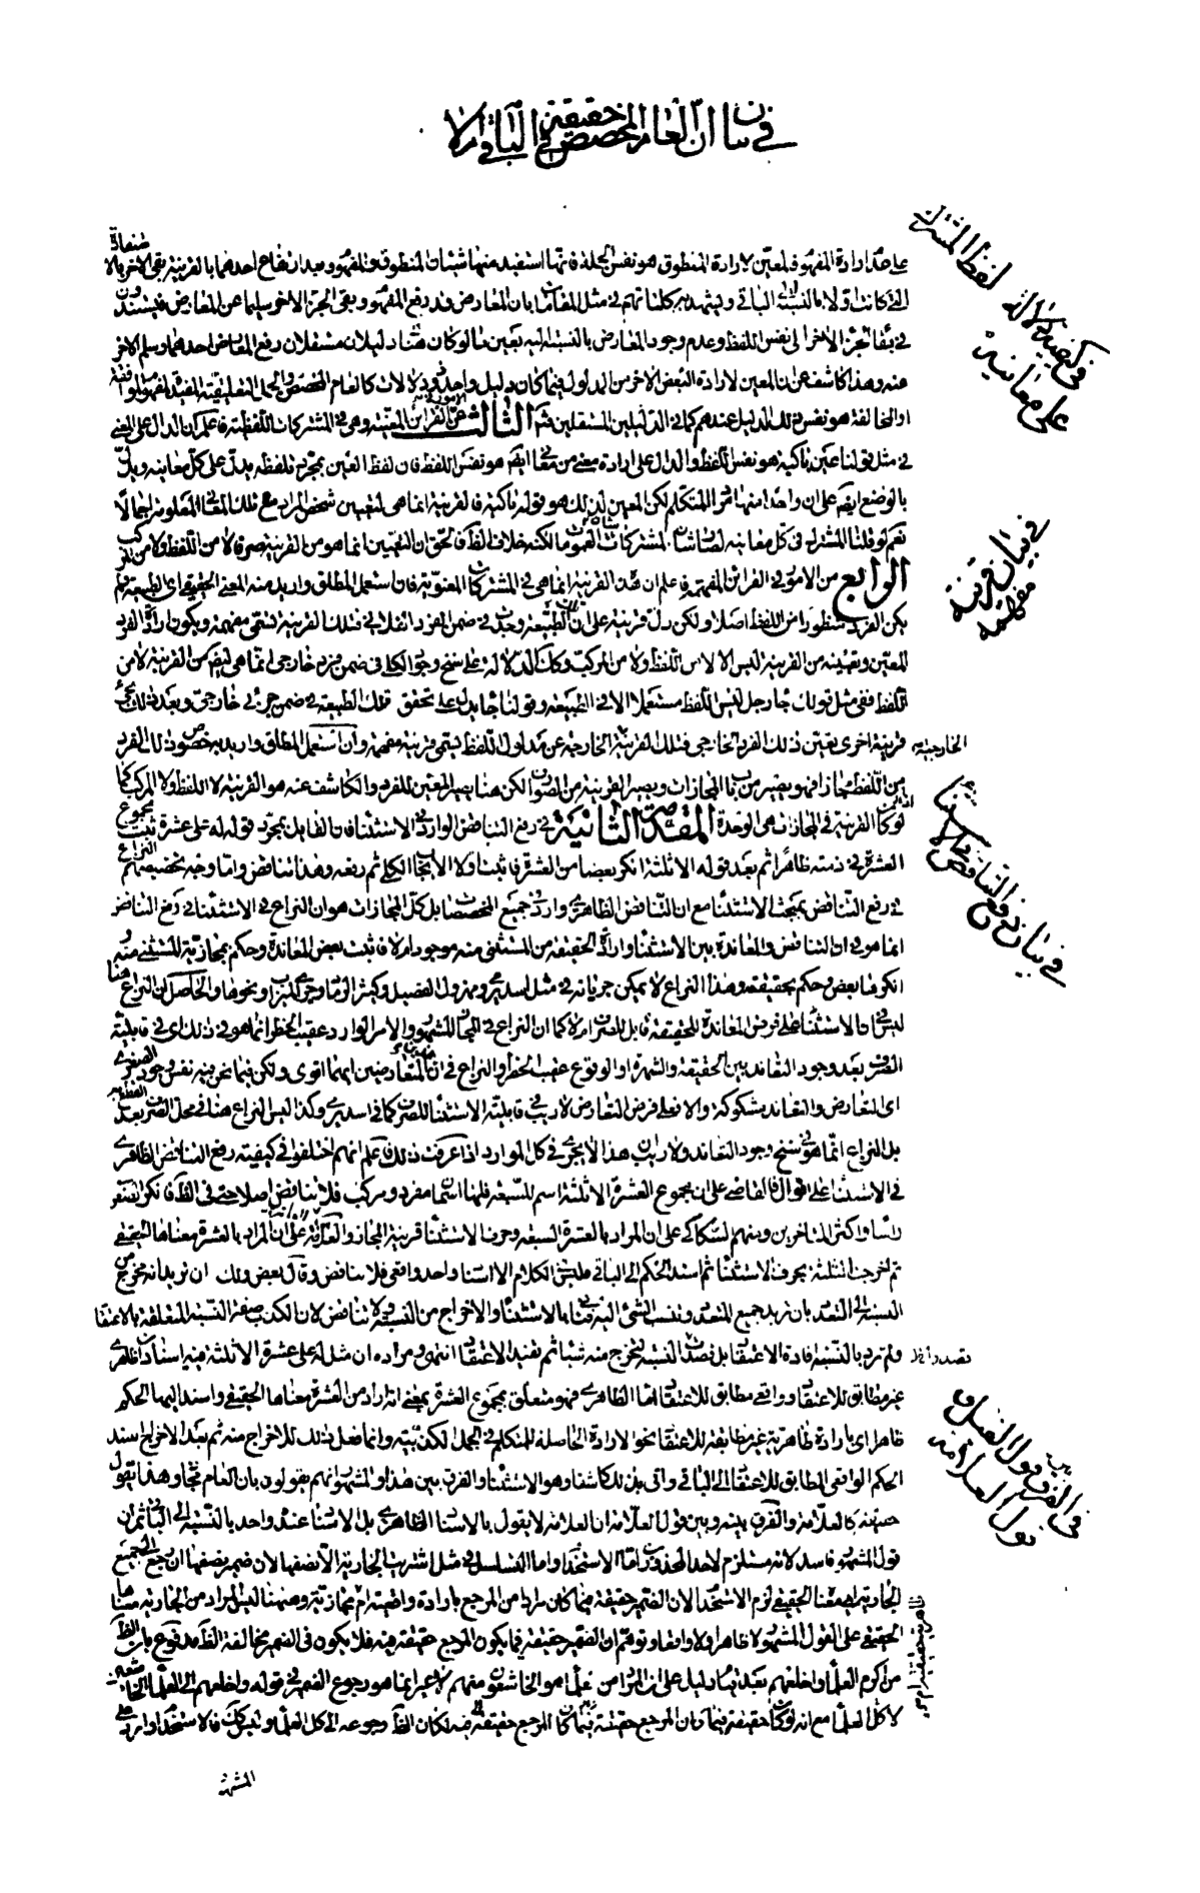 في بيان ان العام المخصص حقيقة في الباقي ام لا
على عدم ارادة المفهوم فالمعين لارادة المنطوق هو نفس الجملة فانها استفيد منها شيئان المنطوق والمفهوم وبعد ارتفاع احدهما بالقرينة بقي الاخر بالا
التي كانت اولا بالنسبة الى الباقي ويشهد به كلماتهم في مثل المقامات بان المعارض قد رفع المفهوم وبقى الجزء الاخر سليما عن المعارض فيستندون
في بقاء الجزء الاخر الى نفس اللفظ وعدم وجود المعارض بالنسبة اليه بعين ما لو كان هنا دليلان مستقلان رفع المعارض احدهما وسلم الاخر
منه وهذا كاشف عن ان المعين لارادة البعض الاخر من المدلول فيما كان دليل واحد ذو دلالات كالعام المخصص والجمل التعليقية المفيدة لمفهوم الموافقة
او المخالفة هو نفس ذلك الدليل عندهم كما في الدليلين المستقلين ثم الثالث من القرائن المعينة وهي في المشتركات اللفظية فاعلم ان الدال على المعنى
في مثل قولنا عين باكية هو نفس اللفظ والدال على ارادة معنى من معاني ايضا هو نفس اللفظ فان لفظ العين بمجرد تلفظه يدل على كل معانيه ويدل
بالوضع ايضا على ان واحدا منها مراد المتكلم لكن المعين لذلك هو قوله باكية فالقرينة انما هي لتعيين شخص المراد مع تلك المعاني المعلومة اجمالا
نعم لو قلنا المشترك في كل معانيه لصار شان المشتركات شان العمومات لكنه خلاف الظ فالحق ان التعيين انما هو من القرينة صرفة لا من اللفظ ولا من المركب
الرابع من الامور في القرائن المفهمة فاعلم ان هذه القرينة انما هي في المشتركات المعنوية فان استعمل المطلق واريد منه المعنى الحقيقي اى الطبيعة لم
يكن الفرد منظورا من اللفظ اصلا ولكن دل قرينة على ان الطبيعة وجدت في ضمن الفرد الفلاني فتلك القرينة تسمى مفهمة ويكون ارادة الفرد
المعين وتعيينه من القرينة ليس الا لا من اللفظ ولا من المركب وكانت الدلالة على سنخ وجود الكلي في ضمن فرد خارجي انما هي ايضا من القرينة لا من
اللفظ ففي مثل قولك جاء رجل ليس اللفظ مستعملا الا في الطبيعة وقولنا جاء يدل على تحقق تلك الطبيعة في ضمن جزئي خارجي وبعد ذلك يجئ
قرينة اخرى بعين ذلك الفرد الخارجي فتلك القرينة الخارجة عن مدلول اللفظ يسمى قرينة مفهمة وان استعمل المطلق واريد به خصوص ذلك الفرد
من اللفظ مجازا فهو يصير من باب المجازات ويصير القرينة من الصوارف لكن هنا يصير المعين للفرد والكاشف عنه هو القرينة لا اللفظ ولا المركب كما
لو كان القرينة في المجازات هي الوحدة المقدمة الثانية في رفع التناقض الوارد في الاستثناء فان القائل بمجرد قوله له على عشرة ثبت مجموع
العشرة في ذمته ظاهرا ثم بعد قوله الا ثلثة انكر بعضا من العشرة فاثبت اولا الايجاب الكلي ثم رفعه وهذا تناقض واما وجه تخصيصهم النزاع
في رفع التناقض بمبحث الاستثناء مع ان التناقض الظاهري وارد في جميع المخصصات بل كل المجازات هو ان النزاع في الاستثناء في رفع التناقض
انما هو في ان التناقض والمعاندة بين الاستثناء وارادة الحقيقة من المستثنى منه موجود ام لا فاثبت بعض المعاندة وحكم بمجازية المستثنى منه و
انكرها بعض وحكم بحقيقته وهذا النزاع لا يمكن جريانه في مثل اسد يرمى ومهزول الفصيل وكثير الرماد وجرى الميزاب ونحوها والحاصل ان النزاع هنا
ليس في ان الاستثناء على فرض المعاندة للحقيقة قابل للصرف ام لا كما ان النزاع في المجاز المشهور والامر الوارد عقيب الحظر انما هو في ذلك اى في قابلية
الصرف بعد وجود التعاند بين الحقيقة والشهرة او الوقوع عقيب الحظر والنزاع في ان المتعارضين ايهما اقوى ولكن فيما نحن فيه نفس وجود الصغرى
اى التعارض والتعاند مشكوكة والا فعلى فرض التعارض لا ريب في قابلية الاستثناء للصرف كما في اسد يرمى وكذا ليس النزاع هنا في محل القرينة بعد
بل النزاع انما هو في سنخ وجود التعاند ولا ريب ان هذا لا يجرى في كل الموارد اذا عرفت ذلك فاعلم انهم اختلفوا في كيفية رفع التناقض الظاهرى
في الاستثناء على اقوال فالقاضى على ان مجموع العشرة الا ثلثة اسم للسبعة فلها اسمان مفرد ومركب فلا تناقض اصلا حتى في الظ فانكر الصغرى
رأسا واكثر المتاخرين ومنهم السكاكى على ان المراد بالعشرة السبعة وحرف الاستثناء قرينة المجاز والعلامة على ان المراد بالعشرة معناها الحقيقي
ثم اخرجت الثلثة بحرف الاستثناء ثم اسند الحكم الى الباقي فليس في الكلام الا اسناد واحد واقعى فلا تناقض وقال بعض وذلك ان تريد انه مخرج من
النسبة الى المتعدد بان تريد جميع المتعدد وتنسب الشئ اليه فتاتى بالاستثناء والاخراج من النسبة ولا تناقض لان الكذب صفة النسبة المتعلقة بالاعتقاد
ولم ترد بالنسبة افادة الاعتقاد بل قصدت النسبة لتخرج منه شيئا ثم تفيد الاعتقاد انتهى ومراده ان مثل له على عشرة الا ثلثة فيه اسنادان ظاهرى
غير مطابق للاعتقاد وواقعى مطابق للاعتقاد اما الظاهرى فهو متعلق بمجموع العشرة بمعنى انه اراد من العشرة معناها الحقيقي واسند اليها الحكم
ظاهرا اى بارادة ظاهرية غير مطابقة للاعتقاد نحو الارادة الحاصلة للمتكلم في الجمل الكذبية وانما فعل ذلك للاخراج منه ثم بعد الاخراج اسند
الحكم الواقعى المطابق للاعتقاد الى الباقي واتى بدال كاشف وهو الاستثناء والفرق بين هذا والمشهور انهم يقولون بان العام مجاز وهذا يقول
حقيقة كالعلامة والفرق بينه وبين قول العلامة ان العلامة لا يقول بالاسناد الظاهرى بل الاسناد عنده واحد بالنسبة الى الباقي ثم ان
قول المشهور فاسد لانه مستلزم لاحد المحذورين اما الاستخدام واما التسلسل في مثل اشتريت الجارية الا نصفها لان ضمير نصفها ان رجع الى جميع
الجارية بمعناها الحقيقي لزم الاستخدام لان الضمير حقيقة فيما كان مرادا من المرجع بارادة واقعية ام مجازية وههنا ليس المراد من الجارية معناها
الحقيقي على القول المشهور لا ظاهرا ولا واقعا وتوهم ان الضمير حقيقة فيما يكون المرجع حقيقة فيه فلا يكون في الضمير مخالفة الظ مدفوع بان الظ
من اكرم العلماء واخلعهم بعد قيام دليل على ان المراد من العلماء هو الخاشعون منهم لا غير انما هو رجوع الضمير في قوله واخلعهم الى العلماء الخاشعة
لا كل العلماء مع انه لو كان حقيقة فيما كان المرجع حقيقة فيه لكان الظ رجوعه الى كل العلماء وليس كك فالاستخدام وارد على
المشهور
في كيفية دلالة لفظ المشترك على معانيه
في بيان قرينة مفهمة
الخارجية
في بيان رفع التناقض في الاستثناء
في الفرق بين قول الفصل و قول العلامة